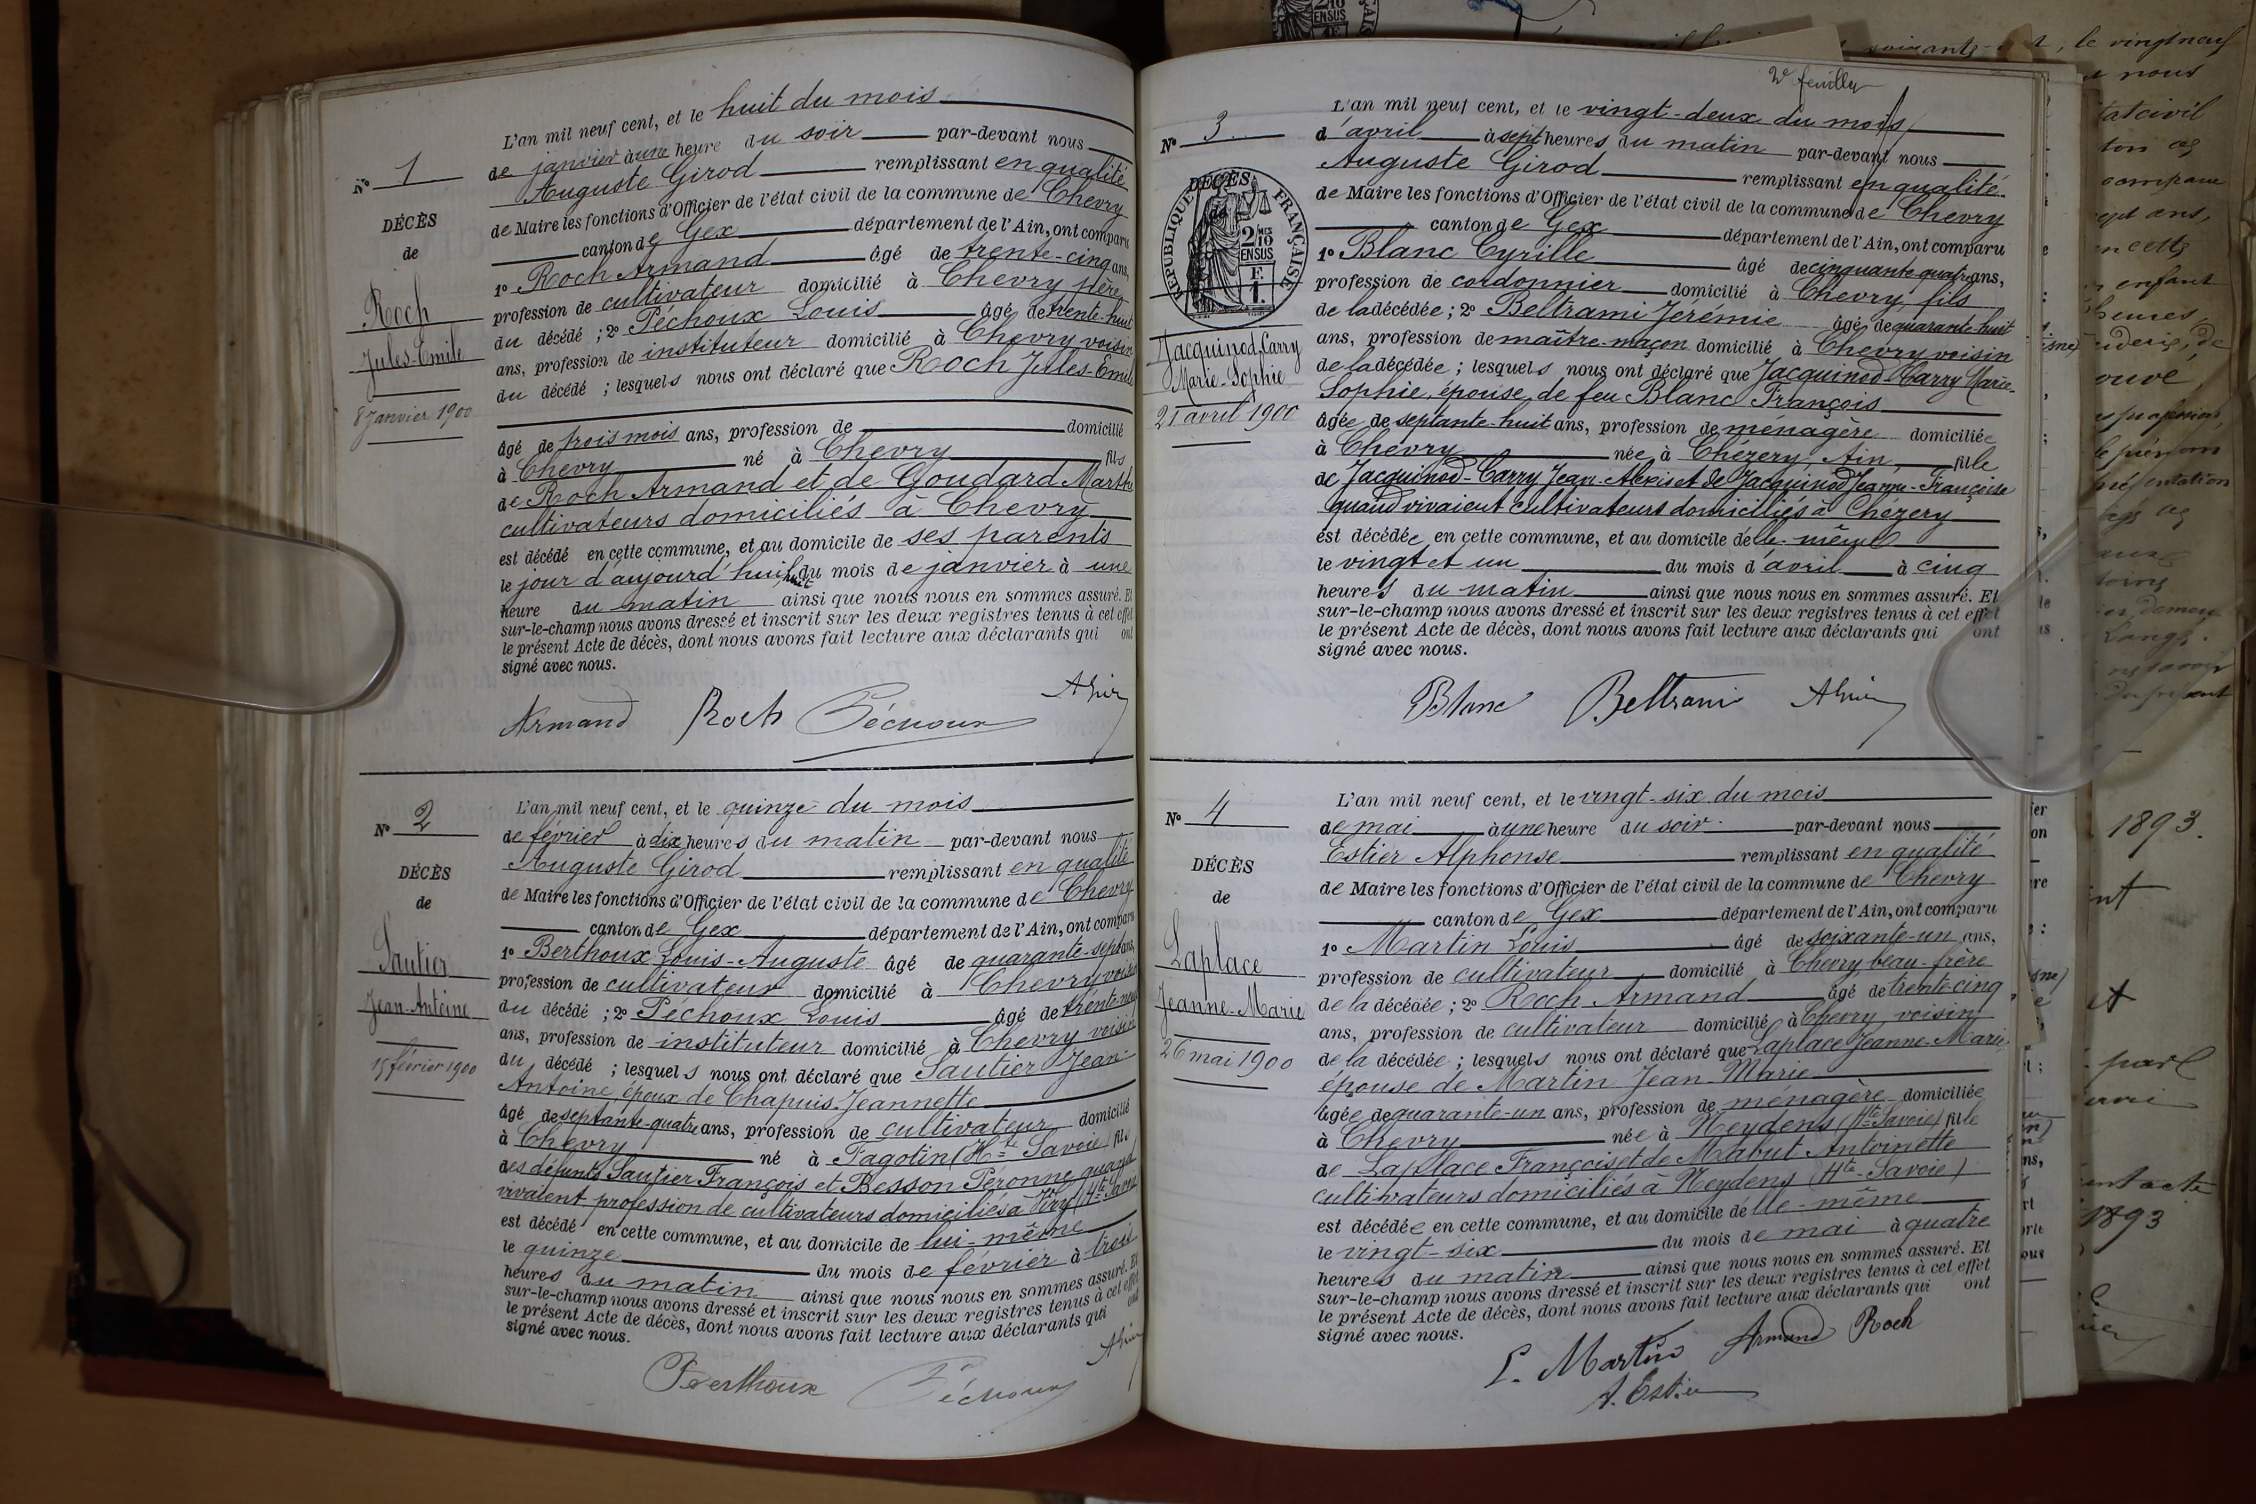 L'an mil neuf cent, et le huit du mois
de janvier à une heure du soir par-devant nous
Auguste Girod remplissant en qualité
de Maire les fonctions d'Officier de l'état civil de la commune de Chevry
canton de Gex département de l'Ain, ont comparu
1° Roch Armand âgé de trente-cinq ans,
profession de cultivateur domicilié à Chevry père
du décédé ; 2° Péchoux Louis âgé de trente-huit
ans, profession de instituteur domicilié à Chevry voisin
du décédé ; lesquels nous ont déclaré que Roch Jules-Emile
âgé de trois mois ans, profession de domicilié
à Chevry né à Chevry fils
de Roch Armand et de Goudard Marthe
cultivateurs domiciliés à Chevry
est décédé en cette commune, et au domicile de ses parents
le jour d'aujourd'hui huit du mois de janvier à une
heure du matin ainsi que nous nous en sommes assuré. Et
sur-le-champ nous avons dressé et inscrit sur les deux registres tenus à cet effet
le présent Acte de décès, dont nous avons fait lecture aux déclarants qui ont
signé avec nous.
Armand Roch Péchoux
N° 1
DÉCÈS
de
Roch
Jules-Emile
8 janvier 1900
N° 2
DÉCÈS
de
Sautier
Jean-Antoine
15 février 1900
L'an mil neuf cent, et le quinze du mois
de février à dix heures du matin par-devant nous
Auguste Girod remplissant en qualité
de Maire les fonctions d'Officier de l'état civil de la commune de Chevry
canton de Gex département de l'Ain, ont comparu
1° Berthoux Louis-Auguste âgé de quarante-sept ans,
profession de cultivateur domicilié à Chevry voisin
du décédé ; 2° Péchoux Louis âgé de trente-neuf
ans, profession de instituteur domicilié à Chevry voisin
du décédé ; lesquels nous ont déclaré que Sautier Jean-
Antoine, époux de Chapuis Jeannette
âgé de septante-quatre ans, profession de cultivateur domicilié
à Chevry né à Fagotin (Hte Savoie) fils
des défunts Sautier François et Besson Péronne quand
vivaient profession de cultivateurs domiciliés à Viry (Hte Savoie
est décédé en cette commune, et au domicile de lui-même
le quinze du mois de février à trois
heures du matin ainsi que nous nous en sommes assuré. Et
sur-le-champ nous avons dressé et inscrit sur les deux registres tenus à cet effet
le présent Acte de décès, dont nous avons fait lecture aux déclarants qui ont
signé avec nous.
Berthoux Péchoux
2e feuillet
N° 3
DÉCÈS
de
RÉPUBLIQUE FRANÇAISE
2/10
EN SUS
F.
1.
Jacquinod-Carry
Marie-Sophie
21 avril 1900
L'an mil neuf cent, et le vingt-deux du mois
d'avril à sept heures du matin par-devant nous
Auguste Girod remplissant en qualité
de Maire les fonctions d'Officier de l'état civil de la commune de Chevry
canton de Gex département de l'Ain, ont comparu
1° Blanc Cyrille âgé de cinquante quatre ans,
profession de cordonnier domicilié à Chevry, fils
de la décédée ; 2° Beltrami Jérémie âgé de quarante-huit
ans, profession de maître-maçon domicilié à Chevry voisin
de la décédée ; lesquels nous ont déclaré que Jacquinod-Carry Marie-
Sophie, épouse de feu Blanc François
âgée de septante-huit ans, profession de ménagère domiciliée
à Chevry née à Chézery Ain, fille
de Jacquinod-Carry Jean-Alexis et de Jacquinod Jeanne-Françoise
quand vivaient cultivateurs domiciliés à Chézery
est décédée en cette commune, et au domicile d'elle-même
le vingt et un du mois d'avril à cinq
heures du matin ainsi que nous nous en sommes assuré. Et
sur-le-champ nous avons dressé et inscrit sur les deux registres tenus à cet effet
le présent Acte de décès, dont nous avons fait lecture aux déclarants qui ont
signé avec nous.
Blanc Beltrami
N° 4
DÉCÈS
de
Laplace
Jeanne-Marie
26 mai 1900
L'an mil neuf cent, et le vingt-six du mois
de mai à une heure du soir par-devant nous
Estier Alphonse remplissant en qualité
de Maire les fonctions d'Officier de l'état civil de la commune de Chevry
canton de Gex département de l'Ain, ont comparu
1° Martin Louis âgé de soixante-un ans,
profession de cultivateur domicilié à Chevry beau-frère
de la décédée ; 2° Roch Armand âgé de trente-cinq
ans, profession de cultivateur domicilié à Chevry voisin
de la décédée ; lesquels nous ont déclaré que Laplace Jeanne-Marie
épouse de Martin Jean-Marie
âgée de quarante-un ans, profession de ménagère domiciliée
à Chevry née à Neydens (Hte-Savoie) fille
de Laplace François et de Mabut Antoinette
cultivateurs domiciliés à Neydens (Hte-Savoie)
est décédée en cette commune, et au domicile d'elle-même
le vingt-six du mois de mai à quatre
heures du matin ainsi que nous nous en sommes assuré. Et
sur-le-champ nous avons dressé et inscrit sur les deux registres tenus à cet effet
le présent Acte de décès, dont nous avons fait lecture aux déclarants qui ont
signé avec nous.
L. Martin Armand Roch
A. Estier
1893.
1893